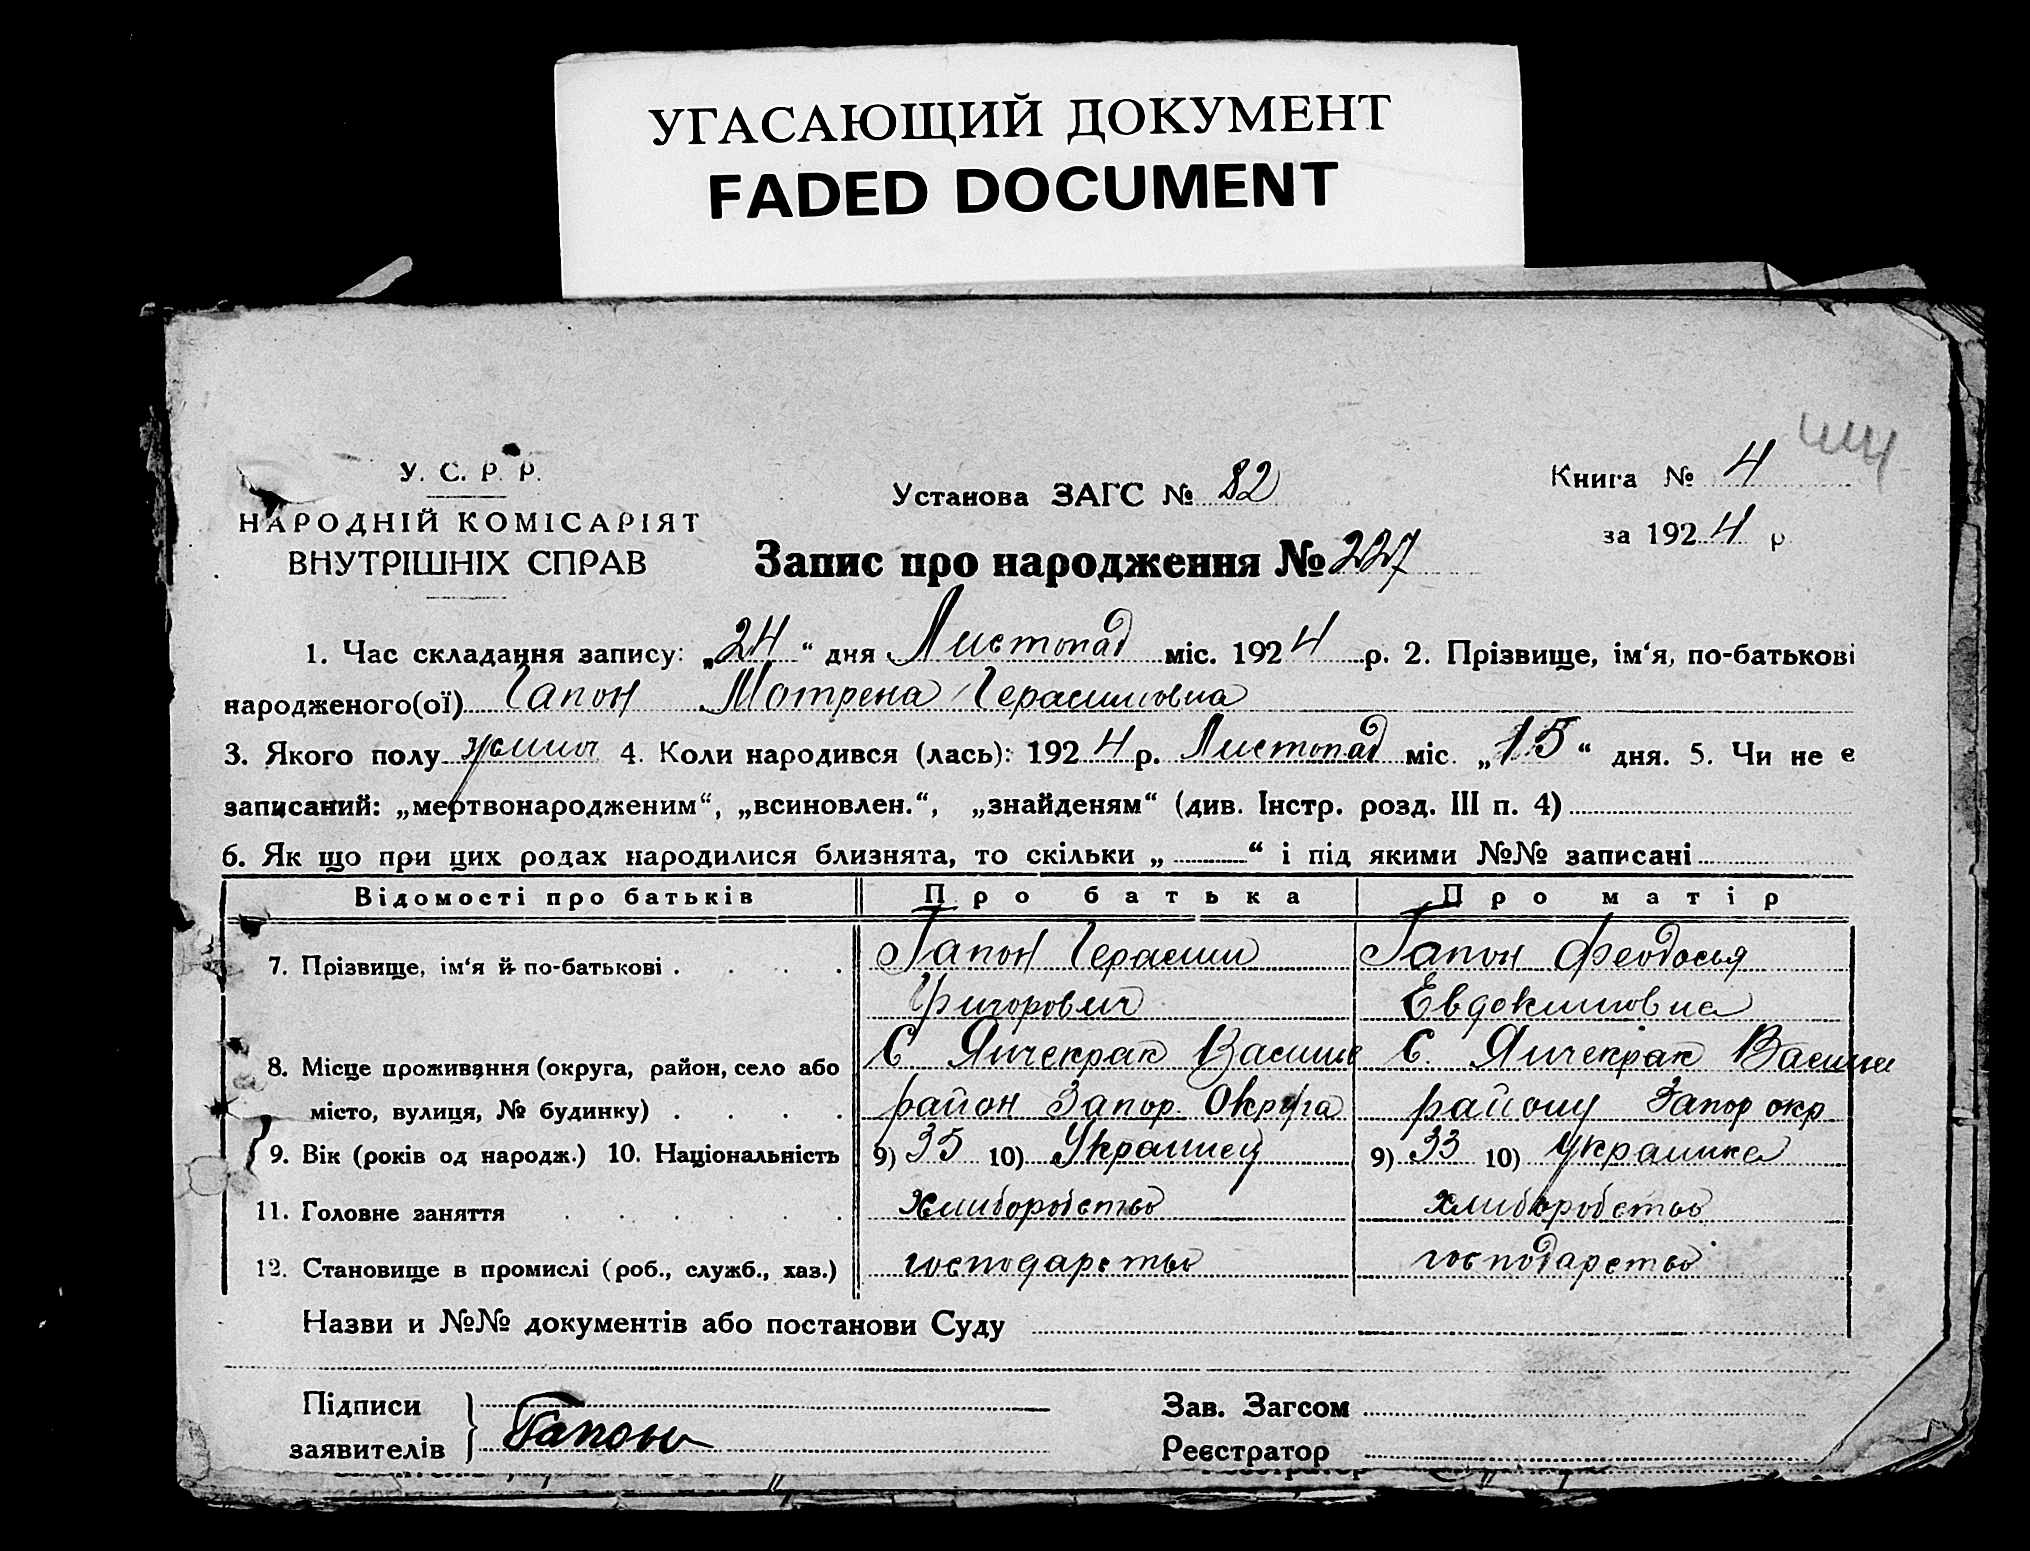 УГАСАЮЩИЙ ДОКУМЕНТ
FADED DOCUMENT
У. С. Р. Р.
НАРОДНІЙ КОМІСАРІЯТ
ВНУТРІШНІХ СПРАВ
Установа ЗАГС № 82
Книга № 4
за 1924 р
Запис про народження № 227
1. Час складання запису: „24“ дня Листопад міс. 1924 р. 2. Прізвище, ім‘я, по-батькові
народженого(ої) Гапон Мотрена Герасимовна
3. Якого полу 4. Коли народився (лась): 1924 р. Листопад міс. „15“ дня. 5. Чи не є
записаний: „мертвонародженим“, „всиновлен.“, „знайденям“ (див. Інстр. розд. III п. 4)
6. Як що при цих родах народилися близнята, то скільки „ “ і під якими №№ записані
Відомості про батьків Про батька Про матір
7. Прізвище, ім‘я й по-батькові . . . . Гапон Герасим Гапон Феодосья
Григорович Евдокимовна
8. Місце проживання (округа, район, село або С. Янчекрак Васильє С. Янчекрак Васильє
місто, вулиця, № будинку) . . . . район Запор. Округа району Запор окр
9. Вік (років од народж.) 10. Національність 9) 35 10) Украинец 9) 33 10) Украинка
11. Головне заняття . . . . . . хлиборобство хлиборобство
12. Становище в промислі (роб., служб., хаз.) господарство господарство
Назви и №№ документів або постанови Суду
Підписи
заявителів Гапон
Зав. Загсом
Реєстратор